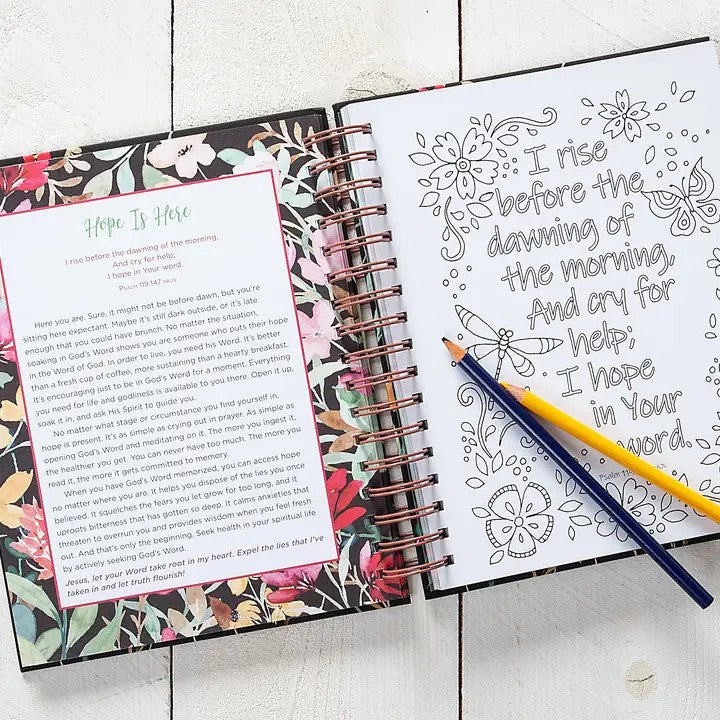 Hope Is Here
I rise before the dawning of the morning,
And cry for help;
I hope in Your word.
Psalm 119:147 NKJV
Here you are. Sure, it might not be before dawn, but you're
sitting here expectant. Maybe it's still dark outside, or it's late
enough that you could have brunch. No matter the situation,
soaking in God's Word shows you are someone who puts their hope
in the Word of God. In order to live, you need His Word. It's better
than a fresh cup of coffee, more sustaining than a hearty breakfast.
It's encouraging just to be in God's Word for a moment. Everything
you need for life and godliness is available to you there. Open it up,
soak it in, and ask His Spirit to guide you.
No matter what stage or circumstance you find yourself in,
hope is present. It's as simple as crying out in prayer. As simple as
opening God's Word and meditating on it. The more you ingest it,
the healthier you get. You can never have too much. The more you
read it, the more it gets committed to memory.
When you have God's Word memorized, you can access hope
no matter where you are. It helps you dispose of the lies you once
believed. It squelches the fears you let grow for too long, and it
uproots bitterness that has gotten so deep. It calms anxieties that
threaten to overrun you and provides wisdom when you feel fresh
out. And that's only the beginning. Seek health in your spiritual life
by actively seeking God's Word.
Jesus, let your Word take root in my heart. Expel the lies that I've
taken in and let truth flourish!
I rise
before the
dawning of
the morning,
And cry for
help;
I hope
in Your
word.
Psalm 119 NKJV